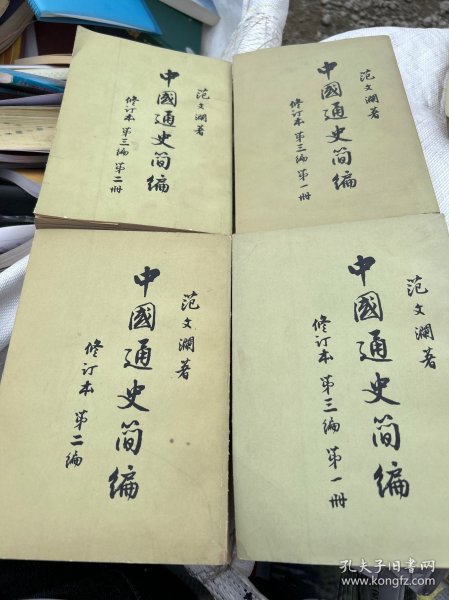 范文澜著
中國通史简编
修订本 第三编 第二册
范文澜著
中國通史简编
修订本 第三编 第一册
范文澜著
中國通史简编
修订本 第二编
范文澜著
中國通史简编
修订本 第三编 第一册
孔夫子旧书网
www.kongfz.com